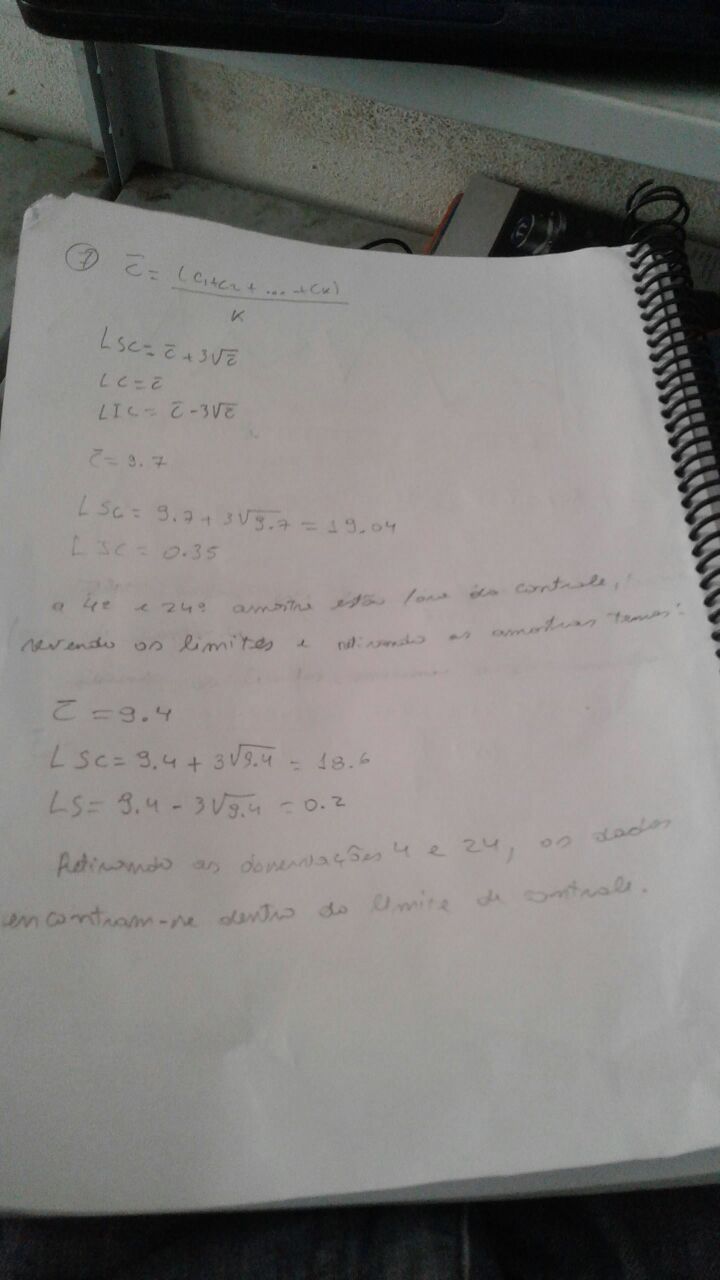 7 c̄ = (C1+C2+...+CK)
K
LSC = c̄ + 3√c̄
LC = c̄
LIC = c̄ - 3√c̄
c̄ = 9.7
LSC = 9.7 + 3√9.7 = 19.04
LSC = 0.35
a 4ª e 24ª amostra estão fora do controle,
revendo os limites e retirando as amostras temos:
c̄ = 9.4
LSC = 9.4 + 3√9.4 = 18.6
LS = 9.4 - 3√9.4 = 0.2
Retirando as observações 4 e 24, os dados
encontram-se dentro do limite de controle.